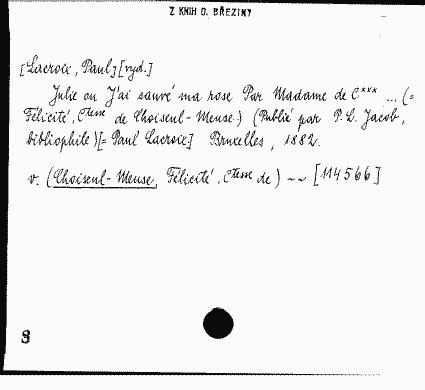 Z KNIH O. BŘEZINY
[Lacroix, Paul] [vyd.]
Julie ou J'ai sauvé ma rose Par Madame de C*** ... (=
Félicité, Ctesse de Choiseul-Meuse.) (Publié par P.L. Jacob,
bibliophile)[= Paul Lacroix] Bruxelles, 1882.
v. (Choiseul-Meuse, Félicité, Ctesse de) ~~ [114566]
8